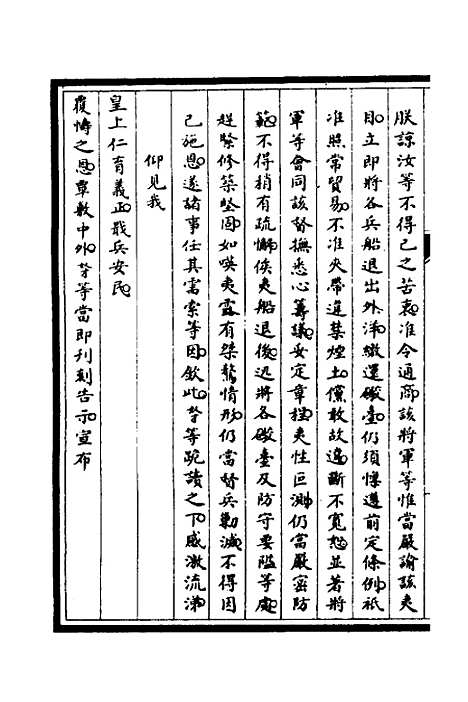 朕諒汝等不得已之苦衷准令通商該將軍等惟當嚴諭該夷
目立即將各兵船退出外洋繳還礮臺仍須懍遵前定條例祇
准照常貿易不准夾帶違禁煙土儻敢故違斷不寬恕並著將
軍等會同該督撫悉心籌議妥定章程夷性叵測仍當嚴密防
範不得稍有疏懈俟夷船退後迅將各礮臺及防守要隘等處
趕緊修築堅固如嘆夷露有桀驁情形仍當督兵勦滅不得因
已施恩遂諸事任其需索等因欽此等跪讀之下感激流涕
仰見我
皇上仁育義正戢兵安民
覆幬之恩覃敷中外等當即刊刻告示宣布